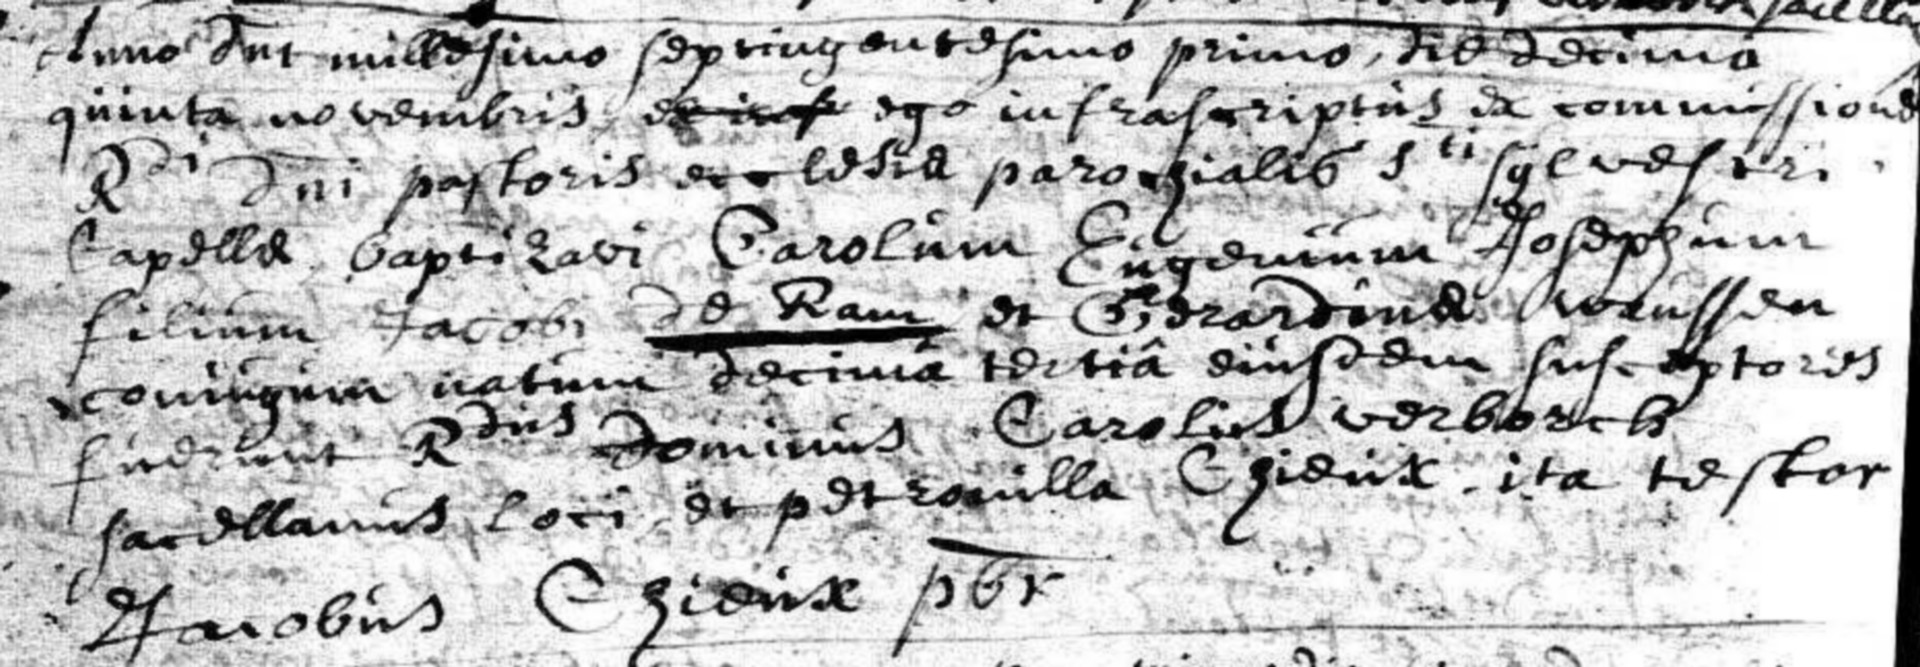 Anno Dni millesimo septingentesimo primo, die decima
quinta novembris ego infrascriptus ex commissione
Rdi Dni pastoris ecclesiæ parochialis Sti Sylvestri
Capellæ baptizavi Carolum Eugenium Josephum
filium Jacobi de Ram et Gerardinæ Wanssen
coniugum natum decimâ tertiâ eiusdem susceptores
fuerunt Rdus dominus Carolus verborch
sacellanus loci et petronilla Chieux. ita testor
Jacobus Chieux pbr